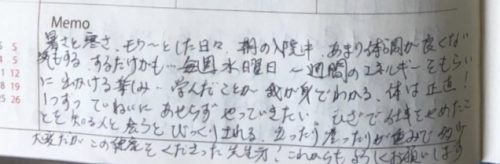 Memo
暑さと寒さ、モワ〜とした日々、桐の入院中、あまり体調が良くな
気もする するだけかも… 毎週水曜日 一週間のエネルギーをもらい
に出かける楽しみ、学んだことが我が身でわかる。体は正直!
1つずつていねいにあせらずやっていきたい ひざで仕事をやめたこ
とを知る人と会うとびっくりされる 立ったり座ったりが
大変だがこの をくださった先生方、これからもよろしくお願いします
5 5
11 12
18 19
25 26